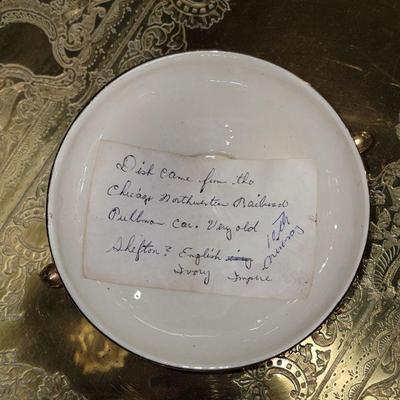 Dish came from the
Chicago Northwestern Railroad
Pullman Car. Very old
Shefton? English
Ivory Empire